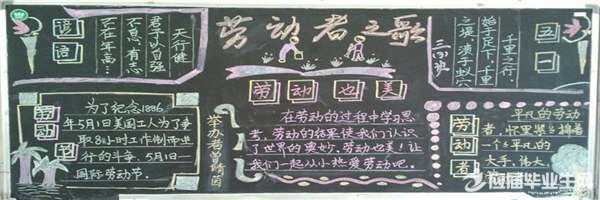 劳动者之歌
寄语
天行健
君子以自强
不息 有志
不在年高…
五一
千里之行,
始于足下,千里
之堤,溃于蚁穴
劳动也美
劳动节
为了纪念1886
年5月1日美国工人为了争
取8小时工作制而进
行的斗争,5月1日—
国际劳动节。
在劳动的过程中学习思
考,劳动的结果使我们认识
了世界的奥妙,劳动也美!让
我们一起从小热爱劳动吧。
劳动者
平凡的劳动
者,怀里
一个平凡的
大手,伟大
应届毕业生网